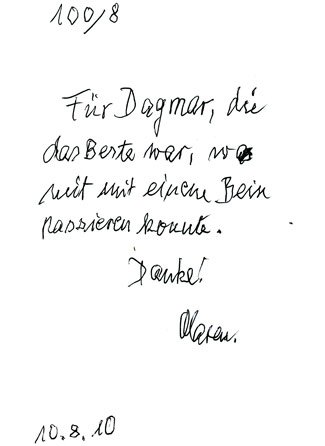 100/8
Für Dagmar, die
das Beste war, was
mit mit einem Bein
passieren konnte.
Danke!
Maren.
10.8.10